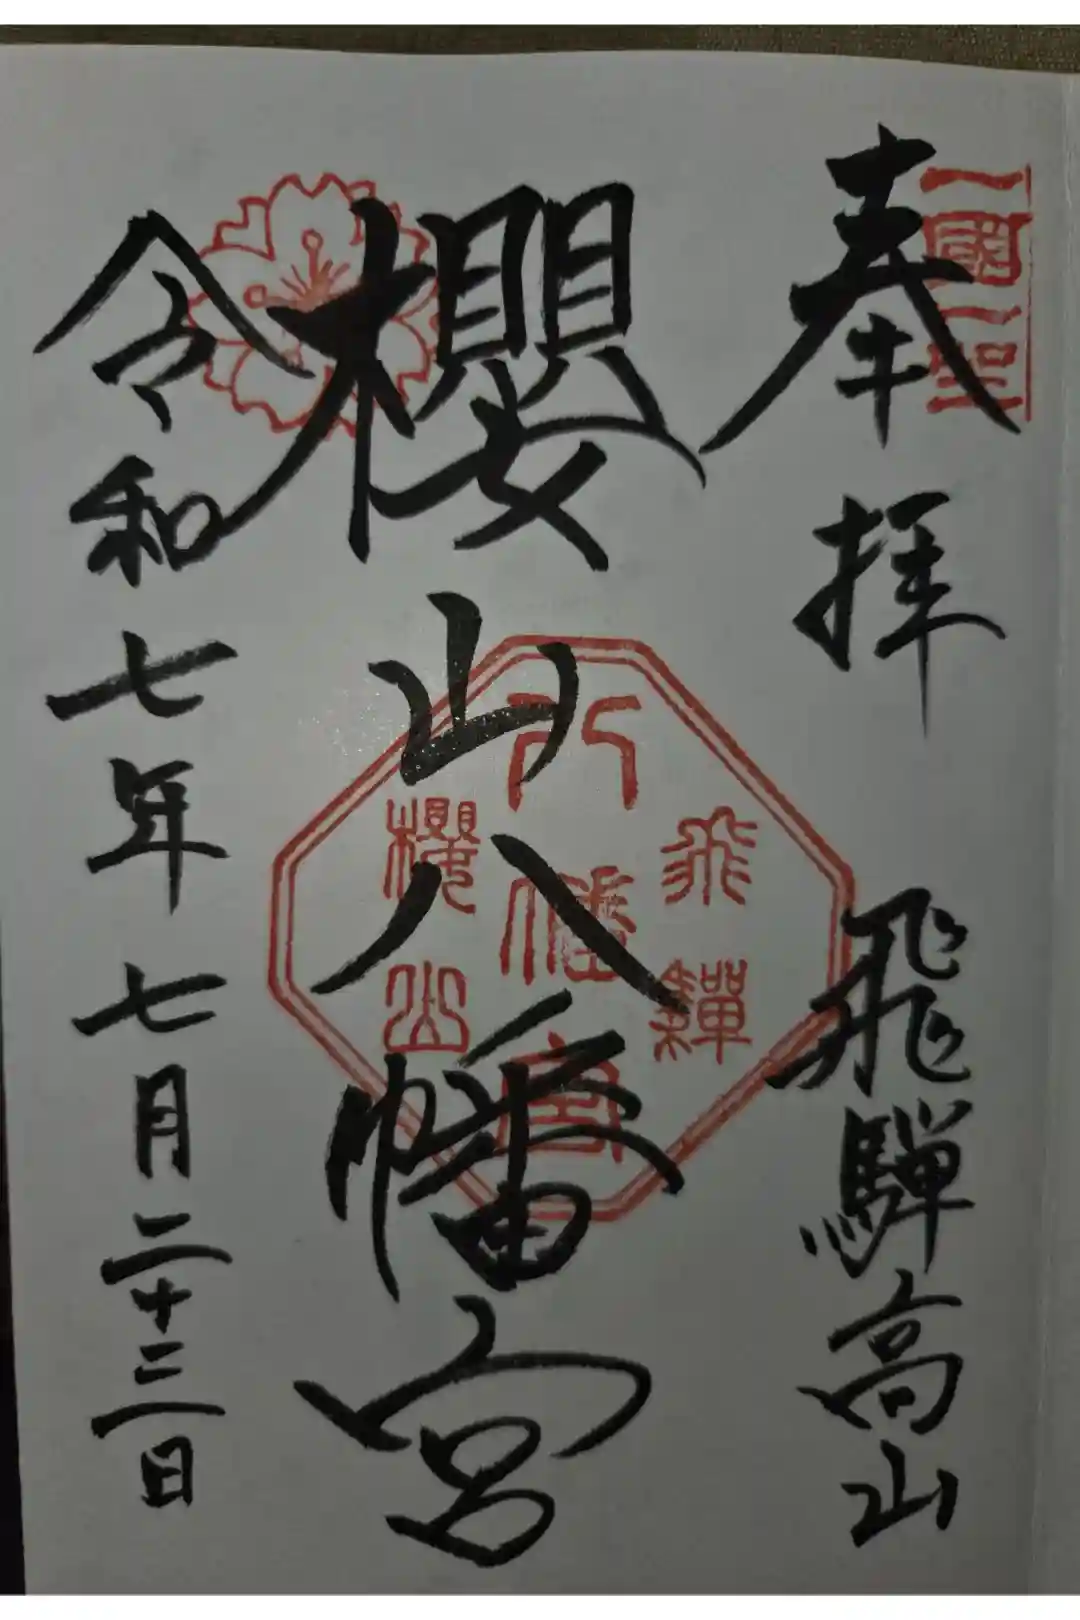 奉拝
飛騨高山
櫻山八幡宮
令和七年七月二十三日
八幡宮
櫻山